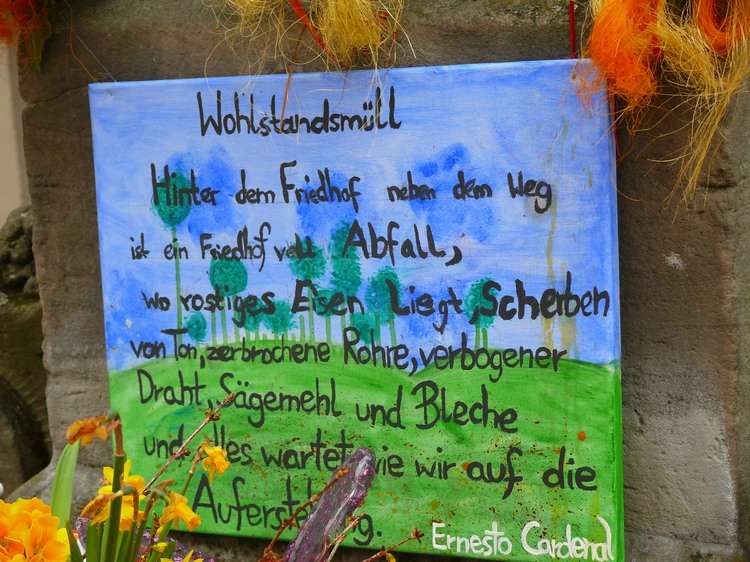 Wohlstandsmüll
Hinter dem Friedhof neben dem Weg
ist ein Friedhof voll Abfall,
wo rostiges Eisen Liegt, Scherben
von Ton, zerbrochene Rohre, verbogener
Draht, Sägemehl und Bleche
und alles wartet wie wir auf die
Auferstehung.
Ernesto Cardenal